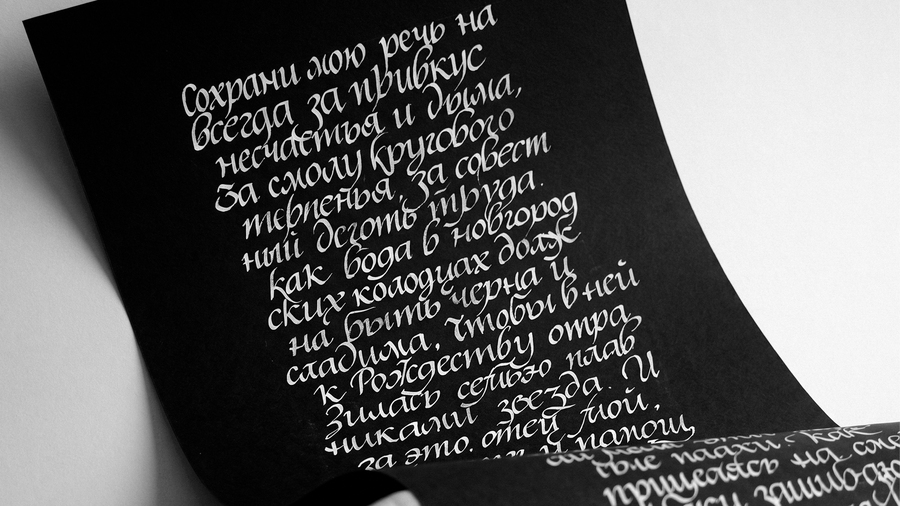 Сохрани мою речь на
всегда за привкус
несчастья и дыма,
За смолу кругового
терпенья, за совест
ный деготь труда.
как вода в новгород
ских колодцах долж
на быть черна и
сладима, чтобы в ней
к Рождеству отра
зилась семью плав
никами звезда. И
за это, отец мой,
и помощ
плахи. Как
прицелясь на сме
зашиба